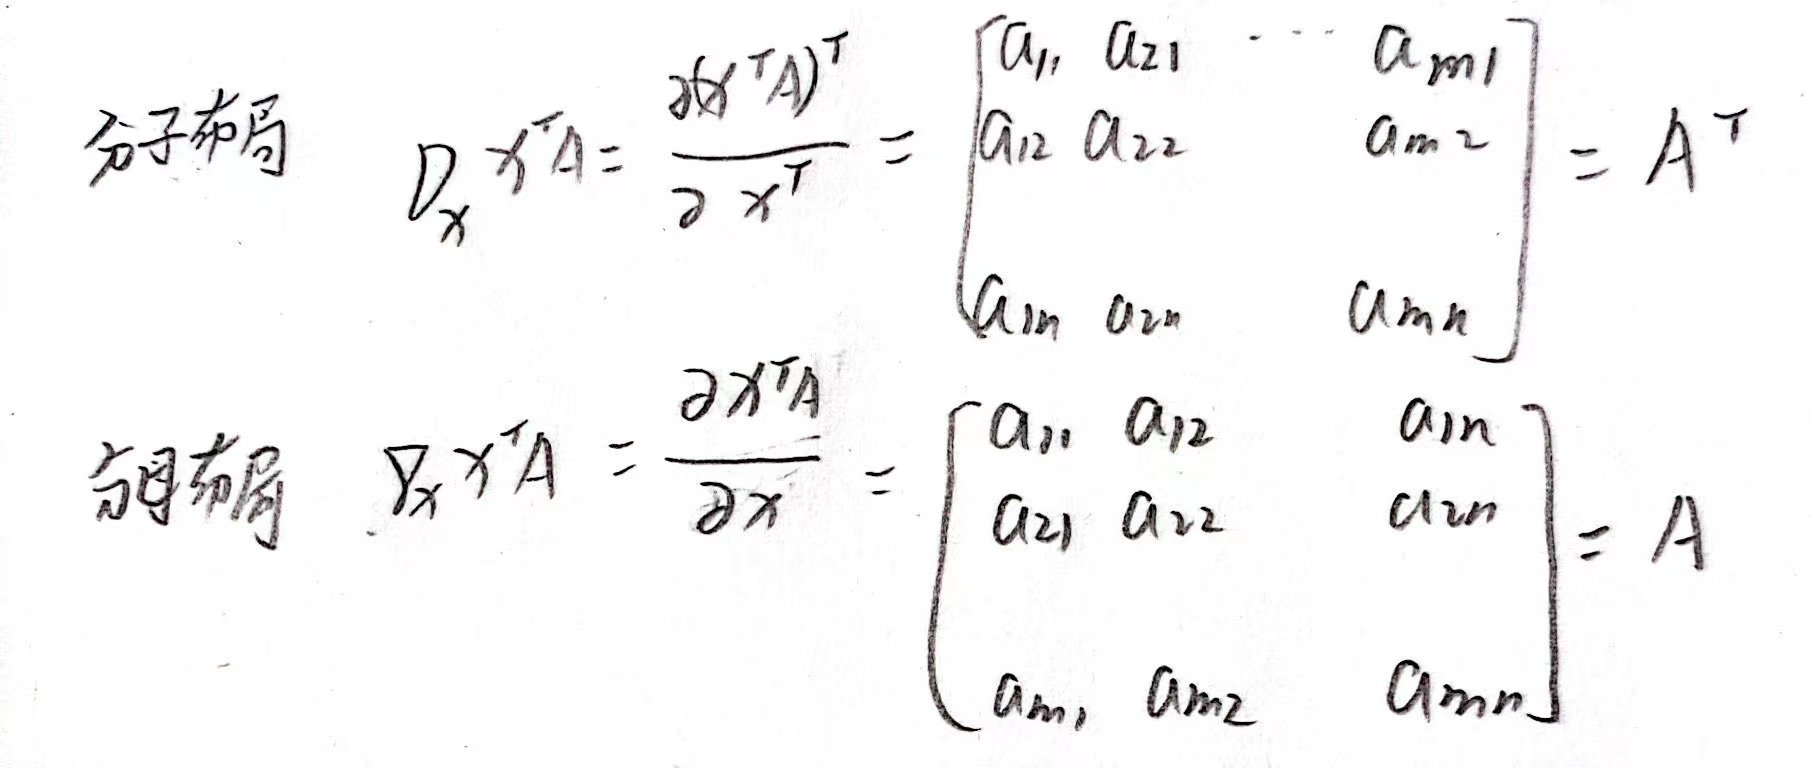 分子布局 D_x x^T A = ∂(x^T A)^T / ∂x^T = [ a_11 a_21 ···· a_m1
a_12 a_22 a_m2
a_1n a_2n a_mn ] = A^T
分母布局 ∇_x x^T A = ∂x^T A / ∂x = [ a_11 a_12 a_1n
a_21 a_22 a_2n
a_m1 a_m2 a_mn ] = A